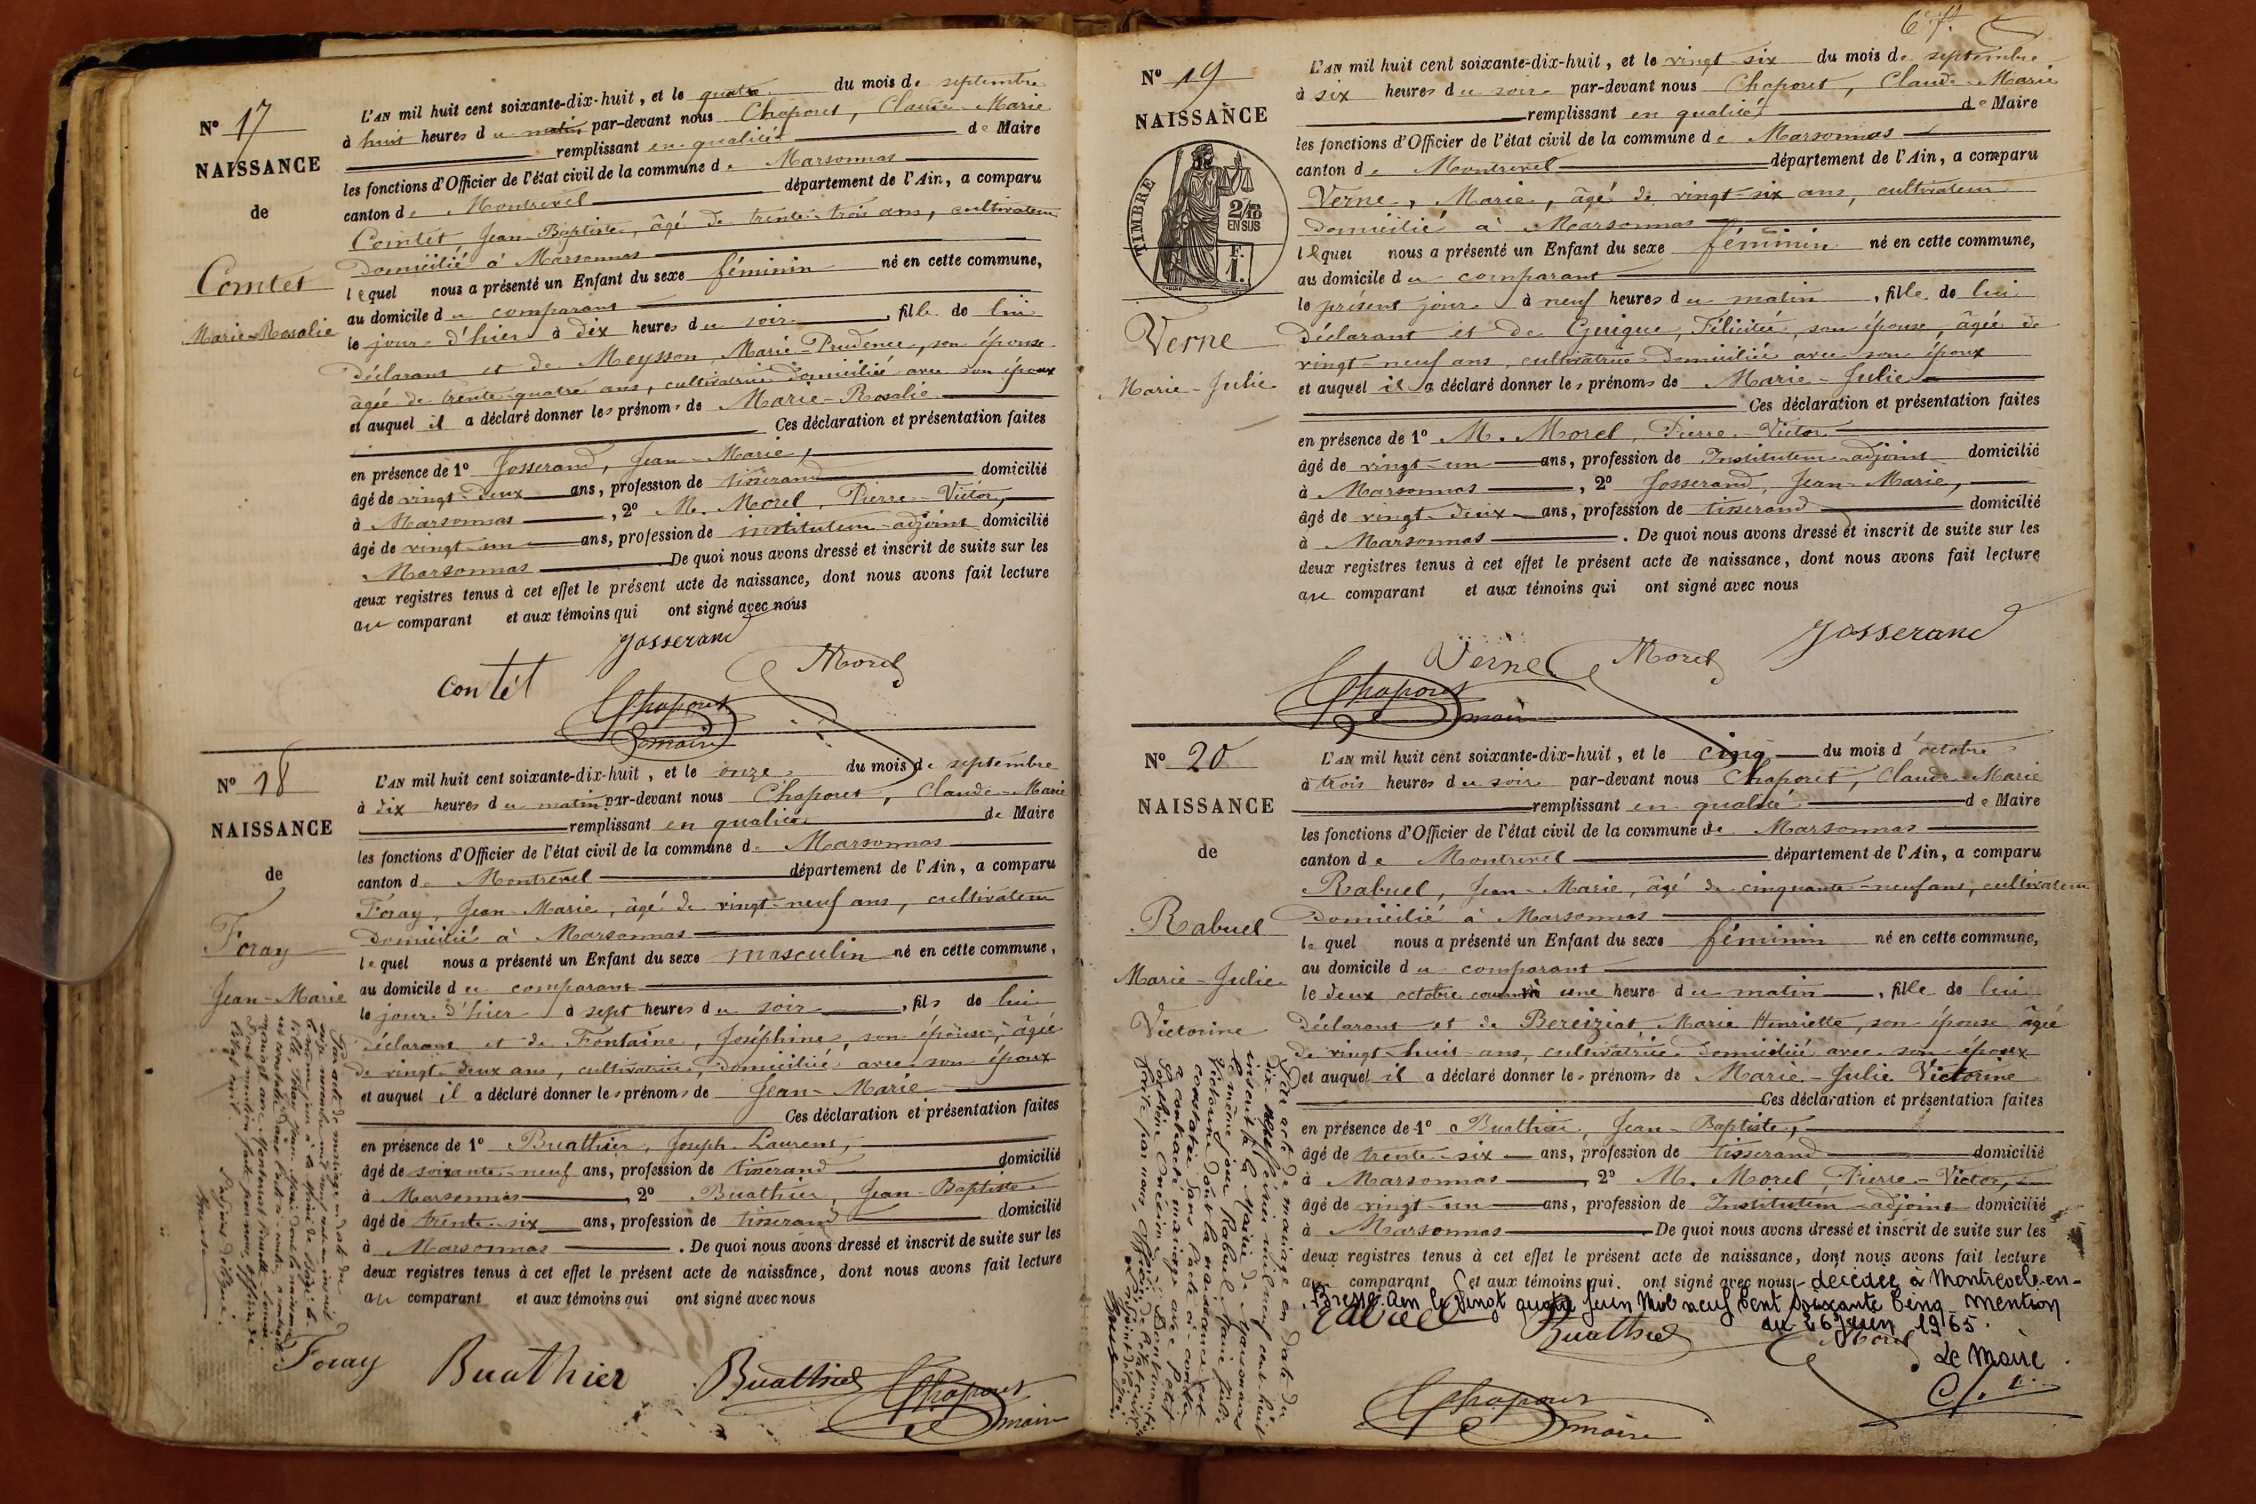 Nº 17
NAISSANCE
de
Comtet
Marie-Rosalie
L'AN mil huit cent soixante-dix-huit, et le quatre du mois de septembre
à huit heures du matin par-devant nous Chaporet, Claude-Marie
remplissant en qualité de Maire
les fonctions d'Officier de l'état civil de la commune de Marsonnas
canton de Montrevel département de l'Ain, a comparu
Comtet Jean-Baptiste, âgé de trente-trois ans, cultivateur
domicilié à Marsonnas
lequel nous a présenté un Enfant du sexe féminin né en cette commune,
au domicile du comparant
le jour d'hier à dix heures du soir, fille de lui
déclarant et de Meysson, Marie-Prudence, son épouse
âgée de trente-quatre ans, cultivatrice domiciliée avec son époux
et auquel il a déclaré donner les prénoms de Marie-Rosalie
Ces déclaration et présentation faites
en présence de 1º Josserand, Jean-Marie,
âgé de vingt-deux ans, profession de tisserand domicilié
à Marsonnas, 2º M. Morel, Pierre-Victor,
âgé de vingt-un ans, profession de instituteur-adjoint domicilié
Marsonnas. De quoi nous avons dressé et inscrit de suite sur les
deux registres tenus à cet effet le présent acte de naissance, dont nous avons fait lecture
au comparant et aux témoins qui ont signé avec nous
Josserand
Contét Morel
Chaporet
maire
Nº 18
NAISSANCE
de
Foray
Jean-Marie
L'AN mil huit cent soixante-dix-huit, et le onze du mois de septembre
à dix heures du matin par-devant nous Chaporet, Claude-Marie
remplissant en qualité de Maire
les fonctions d'Officier de l'état civil de la commune de Marsonnas
canton de Montrevel département de l'Ain, a comparu
Foray, Jean-Marie, âgé de vingt-neuf ans, cultivateur
domicilié à Marsonnas
lequel nous a présenté un Enfant du sexe masculin né en cette commune,
au domicile du comparant
le jour d'hier à sept heures du soir, fils de lui
déclarant et de Fontaine, Joséphine, son épouse, âgée
de vingt-deux ans, cultivatrice, domiciliée avec son époux
et auquel il a déclaré donner les prénoms de Jean-Marie
Ces déclaration et présentation faites
en présence de 1º Buathier, Joseph-Laurent,
âgé de soixante-neuf ans, profession de tisserand domicilié
à Marsonnas, 2º Buathier, Jean-Baptiste
âgé de trente-six ans, profession de tisserand domicilié
à Marsonnas. De quoi nous avons dressé et inscrit de suite sur les
deux registres tenus à cet effet le présent acte de naissance, dont nous avons fait lecture
au comparant et aux témoins qui ont signé avec nous
Par acte de mariage en date du
Foray Buathier Buathier Chaporet
maire
Nº 19
NAISSANCE
TIMBRE
2/10 EN SUS
F. 1.
Verne
Marie-Julie
L'AN mil huit cent soixante-dix-huit, et le vingt-six du mois de septembre
à six heures du soir par-devant nous Chaporet, Claude-Marie
remplissant en qualité de Maire
les fonctions d'Officier de l'état civil de la commune de Marsonnas
canton de Montrevel département de l'Ain, a comparu
Verne, Marie, âgé de vingt-six ans, cultivateur
domicilié à Marsonnas
lequel nous a présenté un Enfant du sexe féminin né en cette commune,
au domicile du comparant
le présent jour à neuf heures du matin, fille de lui
déclarant et de Guigue, Félicité, son épouse, âgée de
vingt-neuf ans, cultivatrice domiciliée avec son époux
et auquel il a déclaré donner les prénoms de Marie-Julie
Ces déclaration et présentation faites
en présence de 1º M. Morel, Pierre-Victor
âgé de vingt-un ans, profession de Instituteur-adjoint domicilié
à Marsonnas, 2º Josserand, Jean-Marie,
âgé de vingt-deux ans, profession de tisserand domicilié
à Marsonnas. De quoi nous avons dressé et inscrit de suite sur les
deux registres tenus à cet effet le présent acte de naissance, dont nous avons fait lecture
au comparant et aux témoins qui ont signé avec nous
Verne Morel Josserand
Chaporet
maire
Nº 20
NAISSANCE
de
Rabuel
Marie-Julie
Victorine
L'AN mil huit cent soixante-dix-huit, et le cinq du mois d'octobre
à trois heures du soir par-devant nous Chaporet, Claude-Marie
remplissant en qualité de Maire
les fonctions d'Officier de l'état civil de la commune de Marsonnas
canton de Montrevel département de l'Ain, a comparu
Rabuel, Jean-Marie, âgé de cinquante-neuf ans, cultivateur
domicilié à Marsonnas
lequel nous a présenté un Enfant du sexe féminin né en cette commune,
au domicile du comparant
le deux octobre courant à une heure du matin, fille de lui
déclarant et de Bereiziat, Marie Henriette, son épouse âgée
de vingt-huit ans, cultivatrice domiciliée avec son époux
et auquel il a déclaré donner les prénoms de Marie-Julie Victorine
Ces déclaration et présentation faites
en présence de 1º Buathier, Jean-Baptiste,
âgé de trente-six ans, profession de tisserand domicilié
à Marsonnas, 2º M. Morel, Pierre-Victor,
âgé de vingt-un ans, profession de Instituteur-adjoint domicilié
à Marsonnas De quoi nous avons dressé et inscrit de suite sur les
deux registres tenus à cet effet le présent acte de naissance, dont nous avons fait lecture
au comparant et aux témoins qui ont signé avec nous - décédée à Montrevel-en-
Bresse Ain le vingt quatre juin mil neuf cent soixante cinq - mention
du 26 juin 1965.
Le Maire
Par acte de mariage en date du
inscrit à la Mairie de Marsonnas
le même jour, Rabuel Marie Julie
Victorine dont la naissance est
constatée dans l'acte ci-contre
a contracté mariage avec Petit
Rabuel Buathier Morel
Chaporet
maire